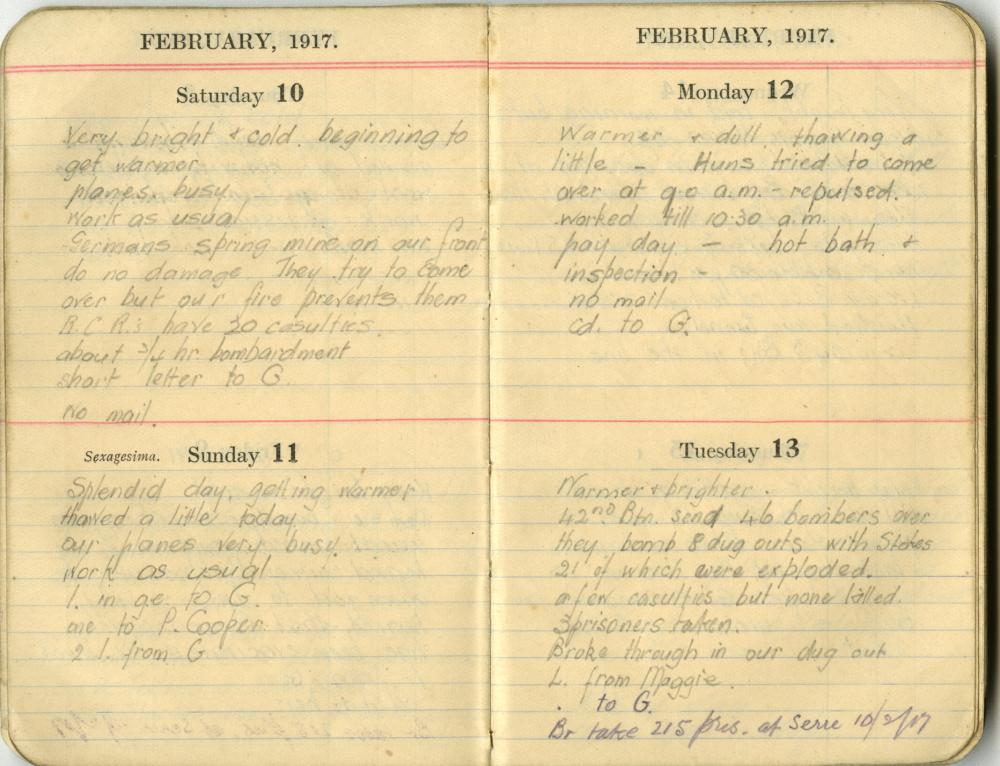 FEBRUARY, 1917.
Saturday 10
Very bright & cold. beginning to
get warmer
planes busy
work as usual
Germans spring mine on our front
do no damage They try to come
over but our fire prevents them
R.C.R.s have 30 casulties.
about 3/4 hr. bombardment
short letter to G.
No mail.
Sexagesima. Sunday 11
Splendid day, getting warmer
thawed a little today
our planes very busy
work as usual
1. in ge to G.
one to P. Cooper
2 l. from G
FEBRUARY, 1917.
Monday 12
Warmer & dull. thawing a
little - Huns tried to come
over at 9.0 a.m. - repulsed.
worked till 10.30 a.m.
pay day - hot bath &
inspection -
no mail
cd. to G.
Tuesday 13
Warmer & brighter.
42nd Btn. send 46 bombers over
they bomb 8 dug outs with Stokes
21 of which were exploded.
a few casulties but none killed.
3 prisoners taken.
Broke through in our dug out
L. from Maggie.
. to G.
Br take 215 pris. at Serre 10/2/17